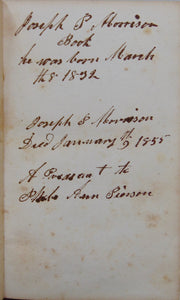 Joseph P. Morrison
Book
he was born March
th 8 1832
Joseph P Morrison
Died January th 9 1855
A Present to
Ann Pierson